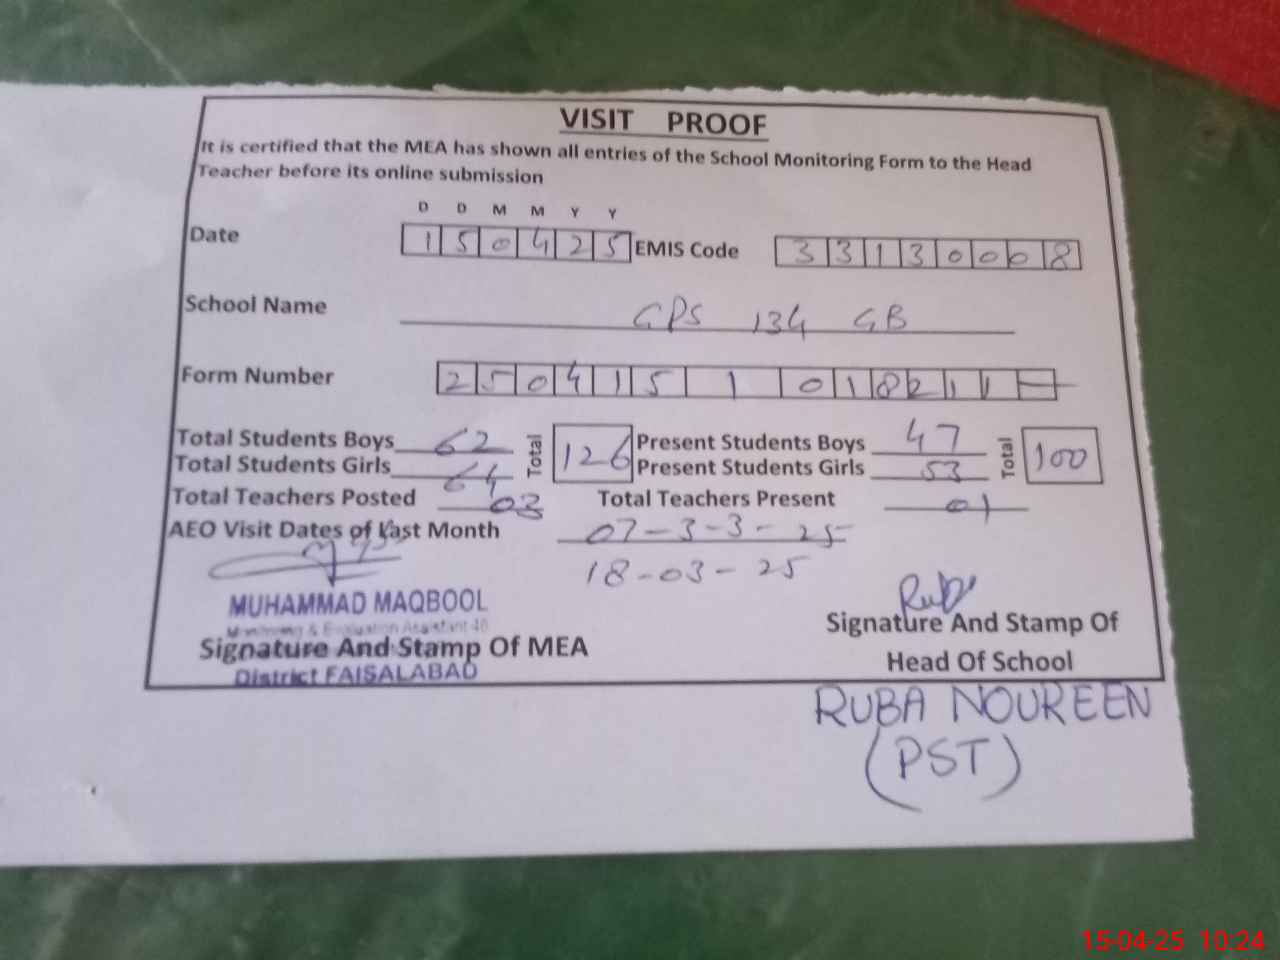 VISIT PROOF
It is certified that the MEA has shown all entries of the School Monitoring Form to the Head
Teacher before its online submission
D D M M Y Y
Date 1 5 0 4 2 5 EMIS Code 3 3 1 3 0 0 0 8
School Name GPS 134 GB
Form Number 2 5 0 4 1 5 1 0 1 8 2 1 1 —
Total Students Boys 62 Total 126 Present Students Boys 47 Total 100
Total Students Girls 64 Present Students Girls 53
Total Teachers Posted 03 Total Teachers Present 01
AEO Visit Dates of Last Month 07-3-3-25
18-03-25
MUHAMMAD MAQBOOL
Monitoring & Evaluation Assistant 40
Signature And Stamp Of MEA
District FAISALABAD
Signature And Stamp Of
Head Of School
RUBA NOUREEN
(PST)
15-04-25 10:24